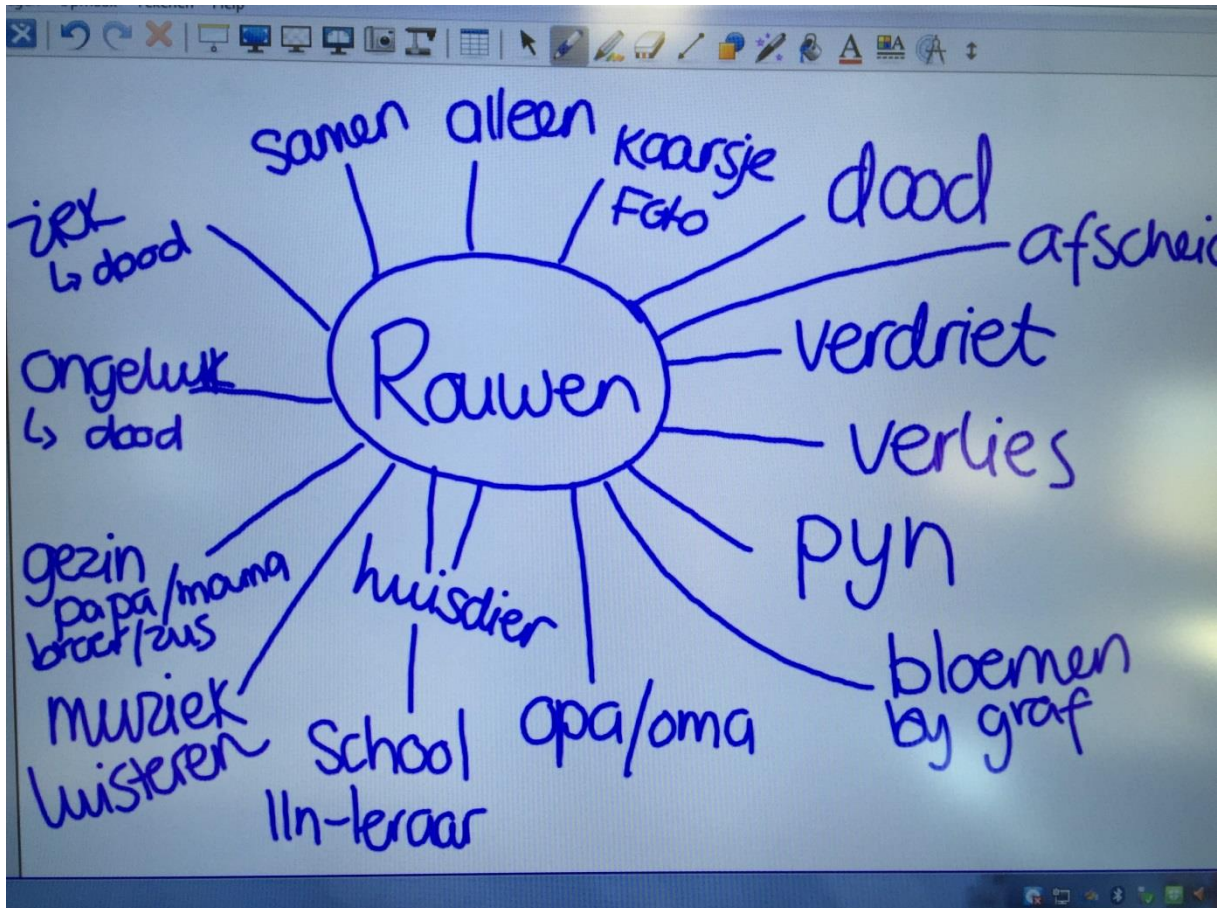 samen
alleen
kaarsje
Foto
dood
afscheid
verdriet
verlies
pyn
bloemen
by graf
opa/oma
huisdier
School
lln-leraar
muziek
luisteren
gezin
papa/mama
broer/zus
ongeluk
↳ dood
ziek
↳ dood
Rouwen